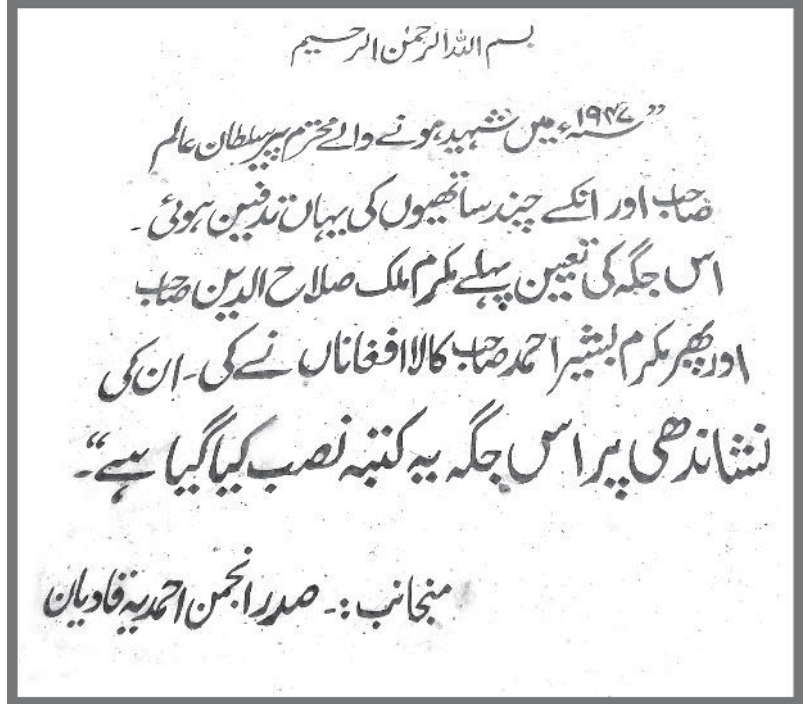 بسم اللہ الرحمٰن الرحیم
”۱۹۴۷ء میں شہید ہونے والے محترم پیر سلطان عالم
صاحب اور انکے چند ساتھیوں کی یہاں تدفین ہوئی ۔
اس جگہ کی تعیین پہلے مکرم ملک صلاح الدین صاحب
اور پھر مکرم بشیر احمد صاحب کالا افغاناں نے کی ۔ ان کی
نشاندھی پر اس جگہ یہ کتبہ نصب کیا گیا ہے“۔
منجانب :۔ صدر انجمن احمدیہ قادیان